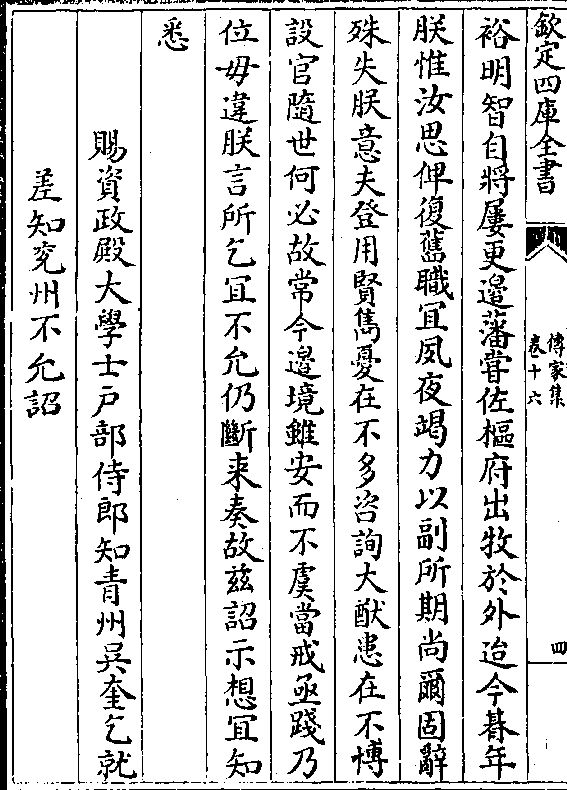 欽定四庫全書
傳家集
卷十六
四
裕明智自將屢更邉藩甞佐樞府出牧於外迨今朞年
朕惟汝思俾復舊職冝夙夜竭力以副所期尚爾固辭
殊失朕意夫登用賢雋憂在不多咨詢大猷患在不博
設官隨世何必故常今邉境雖安而不虞當戒亟踐乃
位毋違朕言所乞冝不允仍斷来奏故兹詔示想冝知
悉
賜資政殿大學士户部侍郎知青州吳奎乞就
差知兖州不允詔